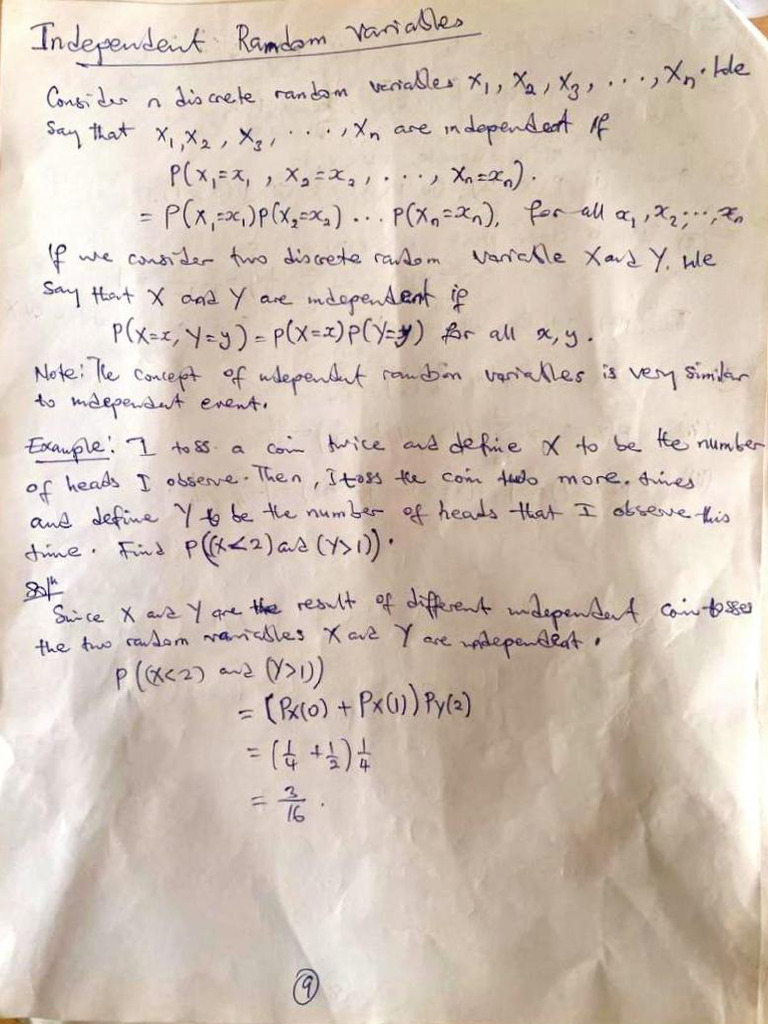 Independent Random Variables
Consider n discrete random variables X₁, X₂, X₃, ..., Xₙ. We
Say that X₁, X₂, X₃, ..., Xₙ are independent if
P(X₁=x₁, X₂=x₂, ..., Xₙ=xₙ).
= P(X₁=x₁)P(X₂=x₂) ... P(Xₙ=xₙ), for all x₁, x₂, ..., xₙ
If we consider two discrete random variable X and Y. We
Say that X and Y are independent if
P(X=x, Y=y) = P(X=x)P(Y=y) for all x, y.
Note: The concept of independent random variables is very similar
to independent event.
Example: I toss a coin twice and define X to be the number
of heads I observe. Then, I toss the coin two more times
and define Y to be the number of heads that I observe this
time. Find P((X<2) and (Y>1)).
Solⁿ
Since X and Y are the result of different independent coin tosses
the two random variables X and Y are independent.
P((X<2) and (Y>1))
= (Px(0) + Px(1)) Py(2)
= (1/4 + 1/2) 1/4
= 3/16.
9